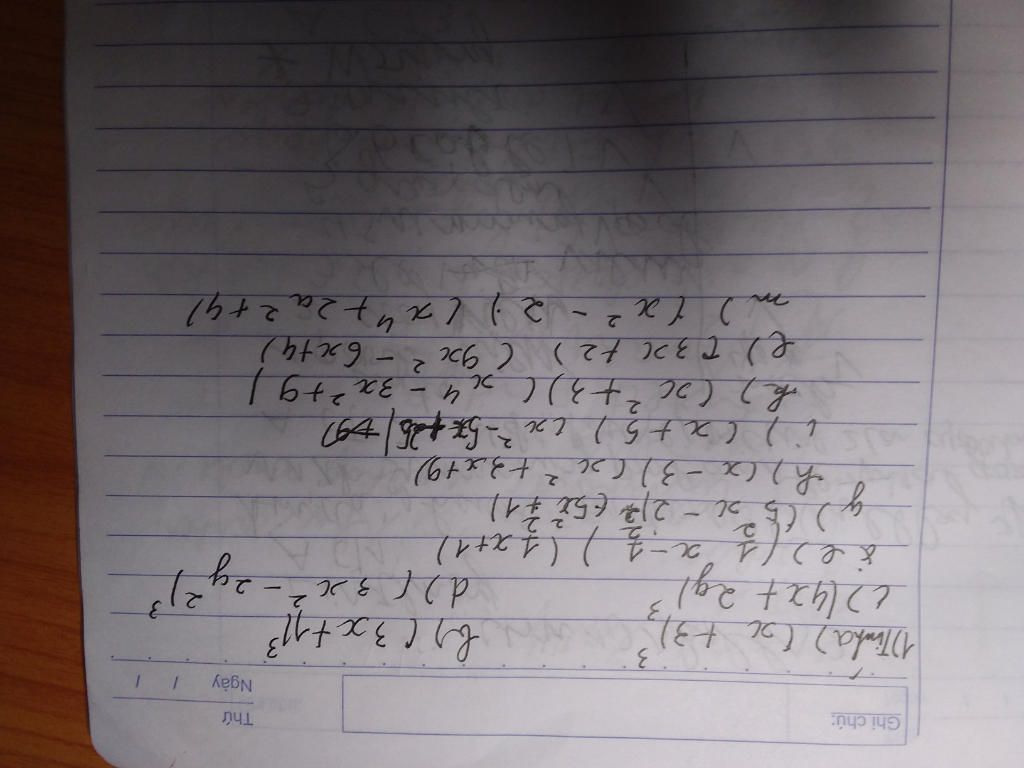 Ghi chú:
Thứ
Ngày / /
1) Tính a) (x + 3)³ b) (3x + 1)³
c) (4x + 2y)³ d) (3x² - 2y²)³
e) (1/2 x - 1/2) (1/2 x + 1)
g) (5x - 2) (5x² + 1)
h) (x - 3) (x² + 3x + 9)
i) (x + 5) (x² - 5x + 25)
k) (x² + 3) (x⁴ - 3x² + 9)
l) (3x + 2) (9x² - 6x + 4)
m) (x² - 2) (x⁴ + 2a² + 4)